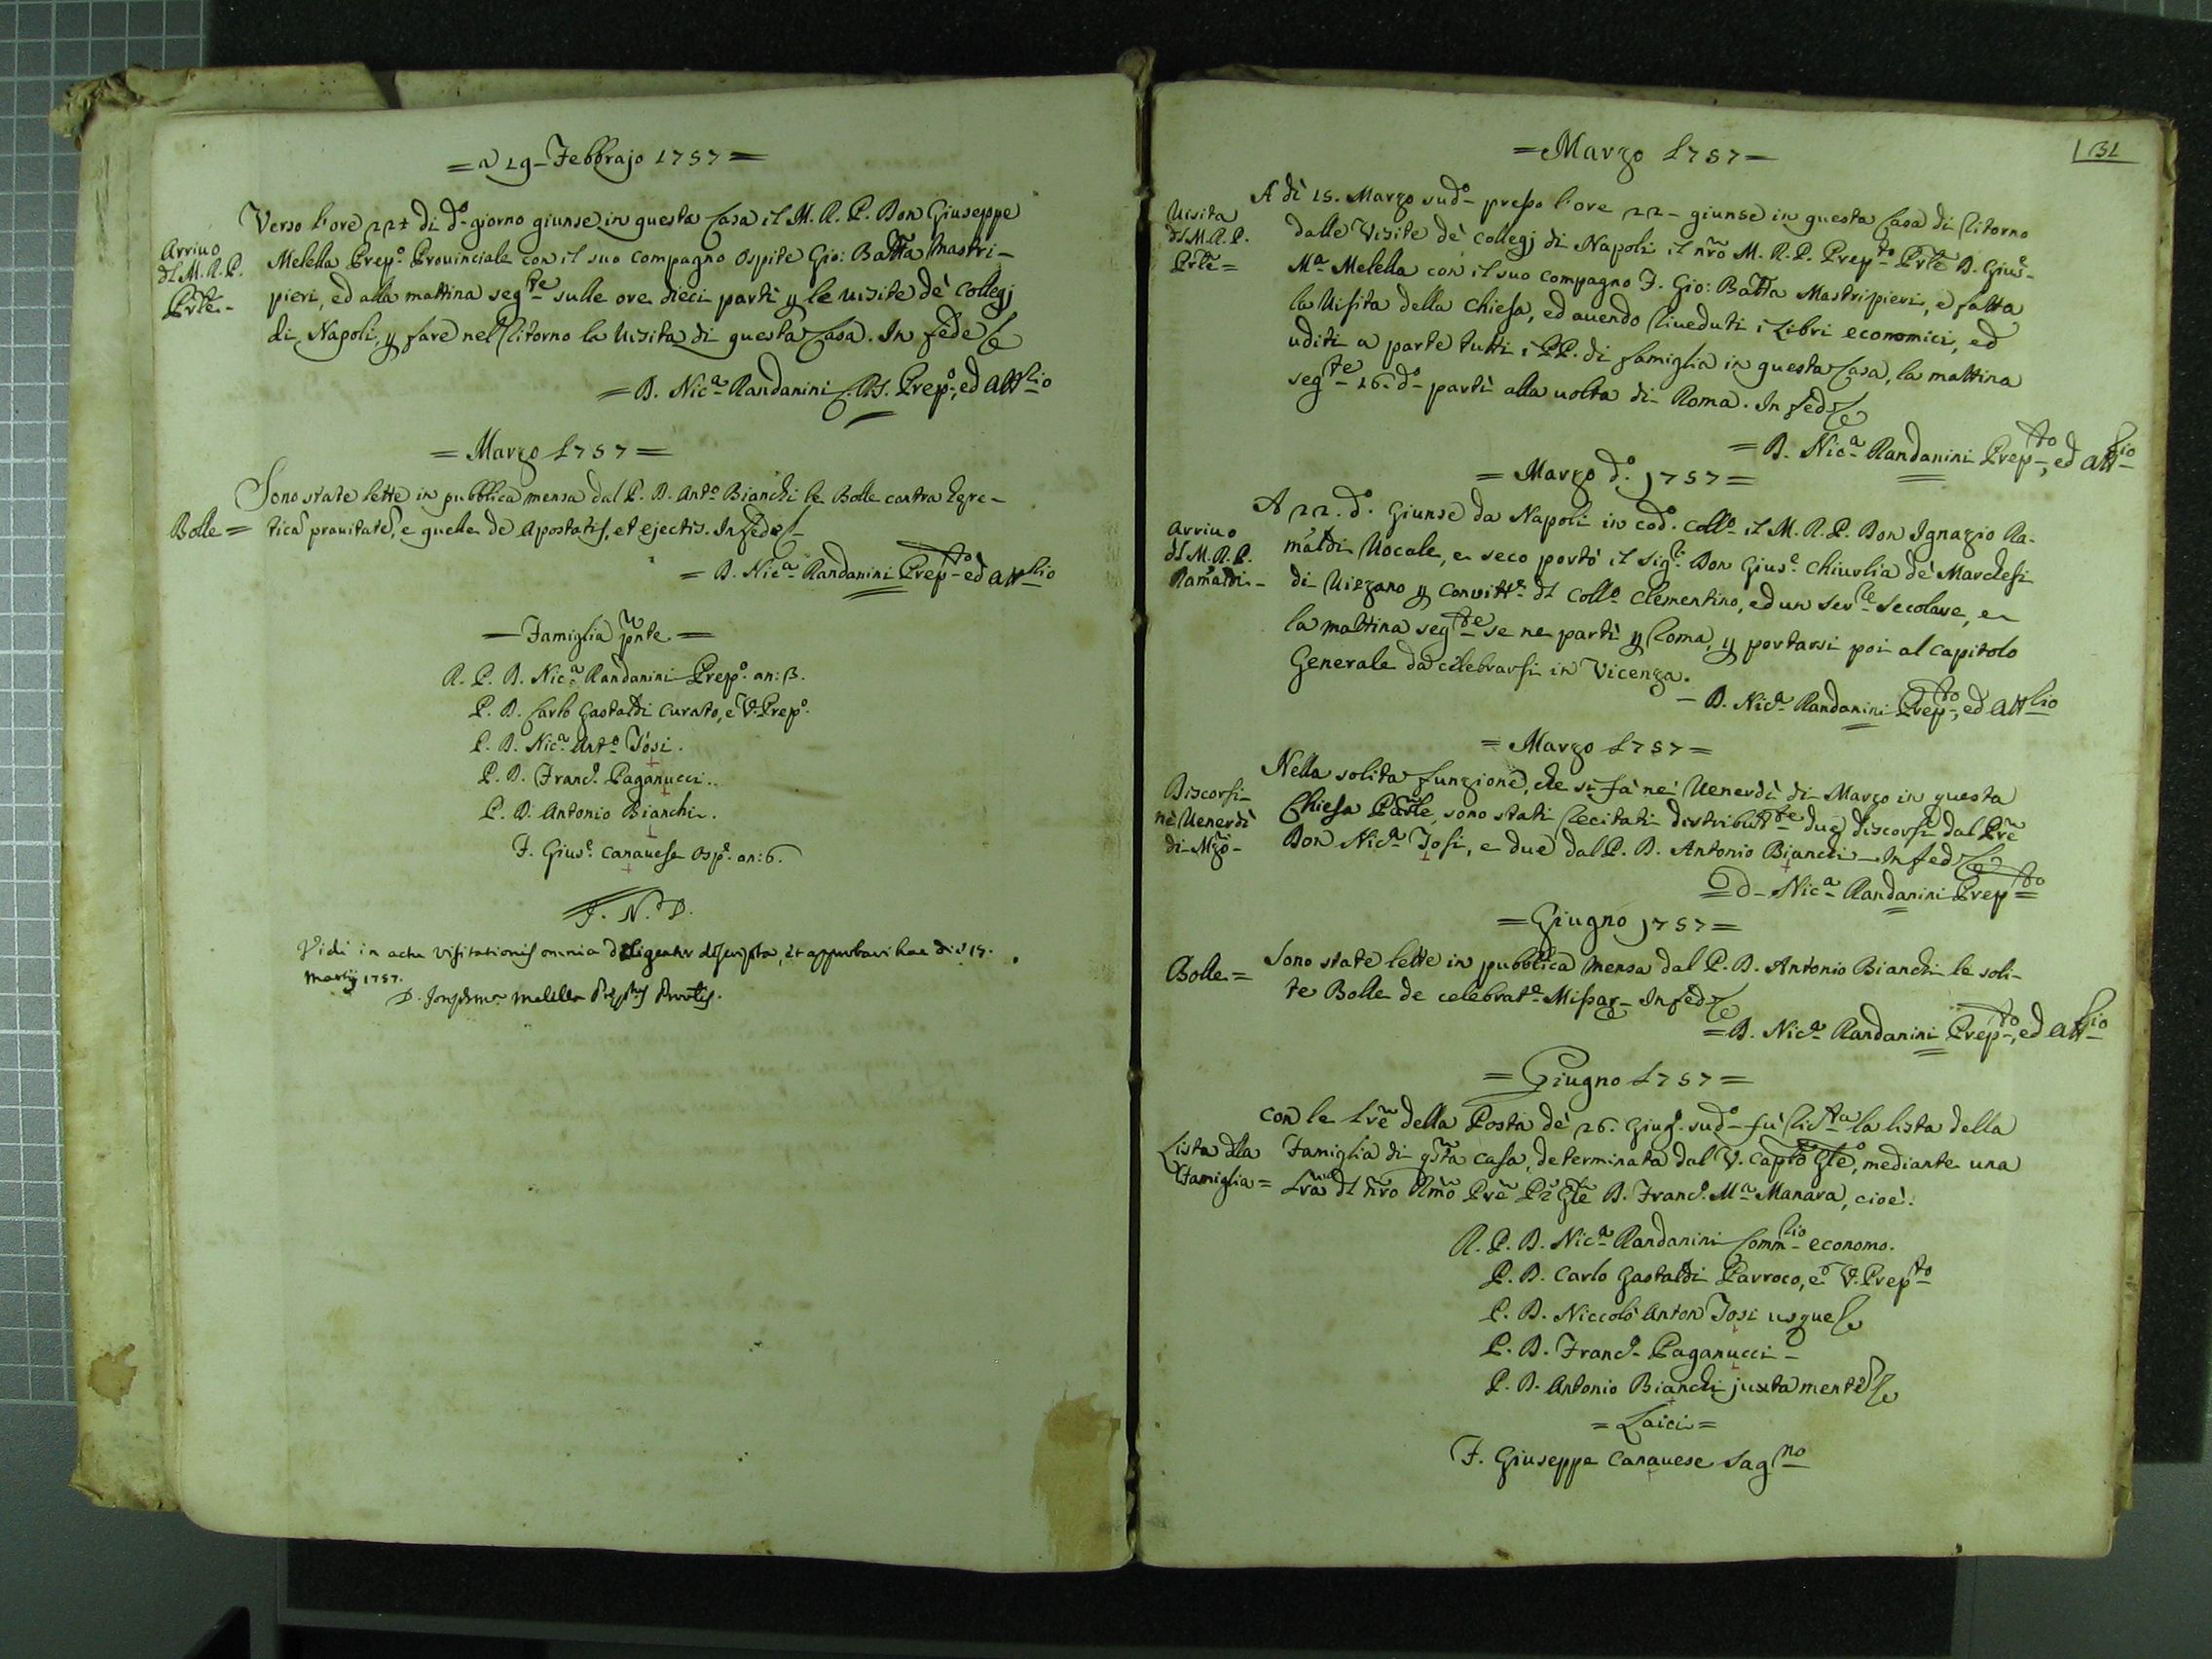 = a 19 Febbrajo 1757 =
Verso l'ore 22 ½ di d.º giorno giunse in questa Casa il M. R. P. Don Giuseppe
Arriuo
dl M. R. P.
Prle.
Melella Prep.º Prouinciale con il suo compagno Ospite Gio: Batta Mastri-
pieri, ed alla mattina seg.te sulle ore dieci partì p le uisite dè Collegj
di Napoli, p fare nel Ritorno la Uisita di questa Casa. In fede &
= D. Nic.a Randanini C. R. S. Prep.º, ed Att.rio
= Marzo 1757 =
Sono state lette in pubblica mensa dal P. D. Ant.º Bianchi le Bolle contra here-
Bolle =
ticã prauitatẽ, e quelle de Apostatis, et ejectis. In fede &
= D. Nic.a Randanini Prep.to ed Att.rio
= Famiglia pnte =
R. P. D. Nic.a Randanini Prep.º an: 3.
P. D. Carlo Gastaldi Curato, e V. Prep.º
P. D. Nic.a Ant.º Josi.
P. D. Franc.º Paganucci.
P. D. Antonio Bianchi.
F. Gius.e Canauese Osp.e an: 6.
J. N. D.
Vidi in actu visitationis omnia diligenter descripta, et approbavi hac die 15.
Martij 1757.
D. Joseph M.a Melella Præptus Provlis.
131
= Marzo 1757 =
A dì 15. Marzo sud.º presso l'ore 22 giunse in questa Casa di Ritorno
Uisita
dl M. R. P.
Prle =
dalle Visite dè Collegj di Napoli il nrõ M. R. P. Prep.to Prle D. Gius.e
M.a Melella con il suo compagno F. Gio: Batta Mastripieri, e fatta
la Uisita della Chiesa, ed auendo Riueduti i Libri economici, ed
uditi a parte tutti i PP. di famiglia in questa Casa, la mattina
seg.te 16. d.º partì alla uolta di Roma. In fede &
= D. Nic.a Randanini Prep.to, ed Att.rio
= Marzo d.º 1757 =
A 22. d.º Giunse da Napoli in cod.º Coll.º il M. R. P. Don Ignazio Ra-
Arriuo
dl M. R. P.
Ramaldi
maldi Uocale, e seco portò il Sig.r Don Gius.e Chiurlia de' Marchesi
di Lizzano p Convitt.e dl Coll.º Clementino, ed un ser.le secolare, e
la mattina seg.te se ne partì p Roma, p portarsi poi al Capitolo
Generale da celebrarsi in Vicenza.
D. Nic.a Randanini Prep.to, ed Att.rio
= Marzo 1757 =
Nella solita funzione, che si fà nei Uenerdì di Marzo in questa
Discorsi
nè Uenerdì
di Mzõ
Chiesa Pãrle, sono stati Recitati distribut.te due discorsi dal Prẽ
Don Nic.a Josi, e due dal P. D. Antonio Bianchi. In fede &
D. Nic.a Randanini Prep.to
= Giugno 1757 =
Sono state lette in pubblica Mensa dal P. D. Antonio Bianchi le soli-
Bolle =
te Bolle de celebrat.e Missar. In fede &
= D. Nic.a Randanini Prep.to, ed Att.rio
= Giugno 1757 =
Con le Lrẽ della Posta dè 26. Giug.º sud.º fù Ric.ta la lista della
Lista dlla
Famiglia =
Famiglia di qsta casa, determinata dal V. Caplo Gle, mediante una
Lra dl nrõ Rmõ Prẽ Pr Gle D. Franc.º M.a Manara, cioè.
R. P. D. Nic.a Randanini Comm.rio economo.
P. D. Carlo Gastaldi Parroco, e V. Prep.to
P. D. Niccolò Anton Josi usque &
P. D. Franc.º Paganucci
P. D. Antonio Bianchi juxta mentẽ &
= Laici =
F. Giuseppe Canauese Sag.no